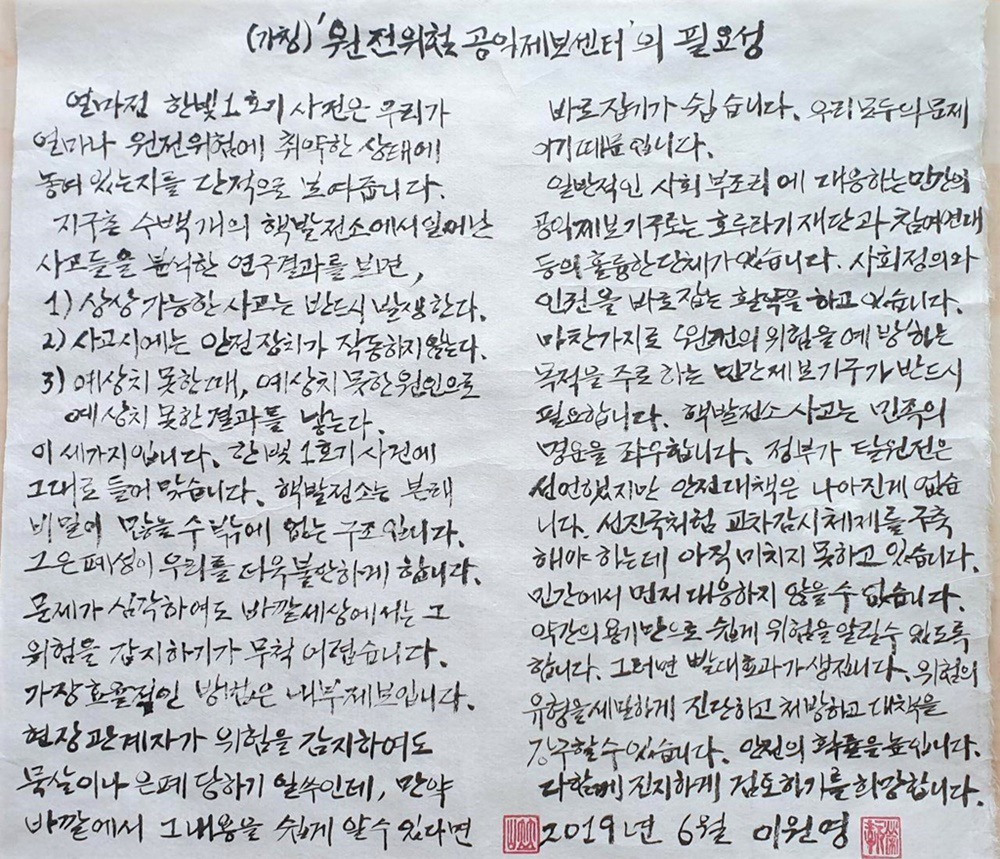 (가칭) '원전위험 공익제보센터'의 필요성
얼마전 한빛1호기 사건은 우리가
얼마나 원전위험에 취약한 상태에
놓여 있는지를 단적으로 보여줍니다.
지구촌 수백개의 핵발전소에서 일어난
사고들을 분석한 연구결과를 보면,
1) 상상 가능한 사고는 반드시 발생한다.
2) 사고시에는 안전장치가 작동하지 않는다.
3) 예상치 못한때, 예상치 못한 원인으로
예상치 못한 결과를 낳는다.
이 세가지입니다. 한빛 1호기사건에
그대로 들어 맞습니다. 핵발전소는 본래
비밀이 많을 수 밖에 없는 구조입니다.
그 은폐성이 우리를 더욱 불안하게 합니다.
문제가 심각하여도 바깥세상에서는 그
위험을 감지하기가 무척 어렵습니다.
가장 효율적인 방법은 내부제보입니다.
현장관계자가 위험을 감지하여도
묵살이나 은폐 당하기 일쑤인데, 만약
바깥에서 그내용을 쉽게 알수 있다면
바로잡기가 쉽습니다. 우리 모두의 문제
이기 때문입니다.
일반적인 사회부조리에 대응하는 민간의
공익제보기구로는 호루라기 재단과 참여연대
등의 훌륭한 단체가 있습니다. 사회정의와
인권을 바로잡는 활약을 하고 있습니다.
마찬가지로 '원전의 위험을 예방'하는
목적을 주로 하는 민간제보기구가 반드시
필요합니다. 핵발전소 사고는 민족의
명운을 좌우합니다. 정부가 탈원전은
선언했지만 안전대책은 나아진게 없습
니다. 선진국처럼 교차감시체제를 구축
해야 하는데 아직 미치지 못하고 있습니다.
민간에서 먼저 대응하지 않을수 없습니다.
약간의 용기만으로 쉽게 위험을 알릴수 있도록
합니다. 그러면 빨대효과가 생깁니다. 위험의
유형을 세밀하게 진단하고 처방하고 대책을
강구할 수 있습니다. 안전의 확률을 높입니다.
다함께 진지하게 검토하기를 희망합니다.
2019년 6월 이원영